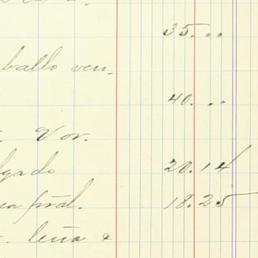 35...
ballo ven.
40...
Vor.
gado 20.14
pral. 18.25
leña &